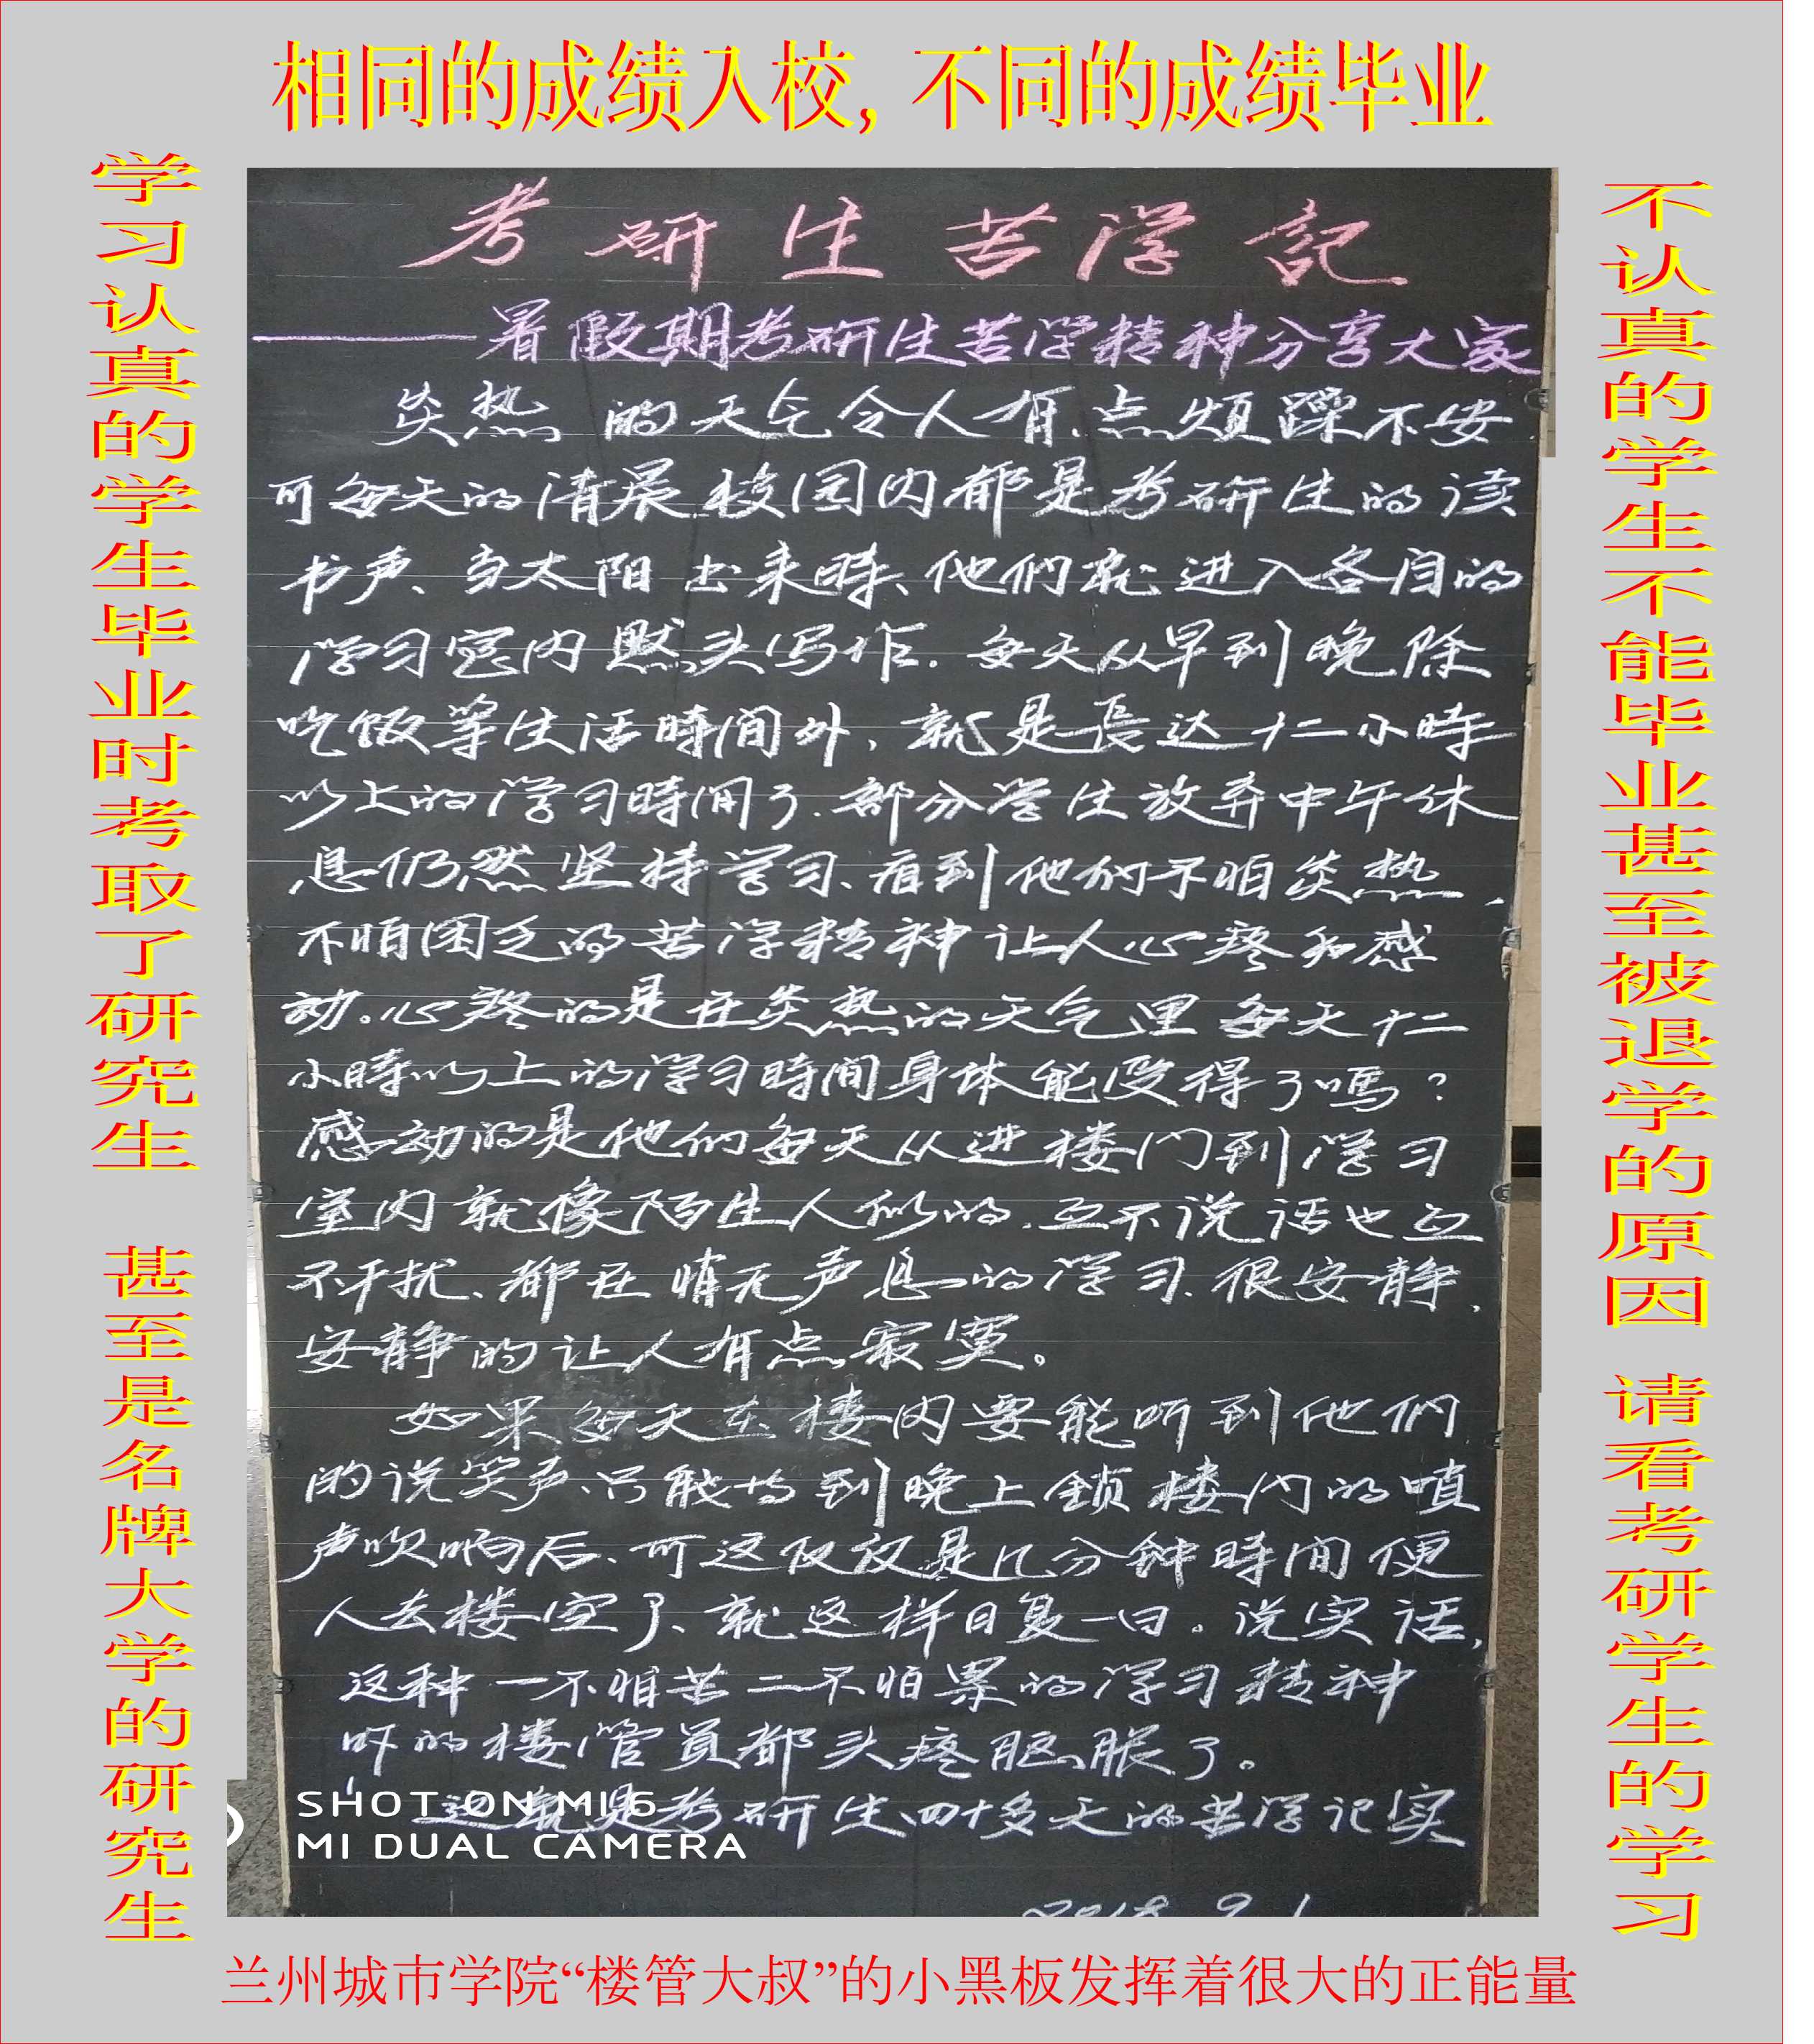 相同的成绩入校，不同的成绩毕业
学习认真的学生毕业时考取了研究生 甚至是名牌大学的研究生
考研生苦学記
——暑假期考研生苦学精神分享大家
炎热的天气令人有点烦躁不安
可每天的清晨校园内都是考研生的读
书声、当太阳出来時、他们就进入各自的
学习室内默头写作．每天从早到晚除
吃饭等生活時间外，就是長达十二小時
以上的学习時间了．部分学生放弃中午休
息仍然坚持学习、看到他们不怕炎热，
不怕困乏的苦学精神让人心疼和感
动。心疼的是在炎热的天气里每天十二
小時以上的学习時间身体能受得了嗎？
感动的是他们每天从进楼门到学习
室内就像陌生人似的．互不说话也互
不干扰、都在悄无声息的学习．很安静，
安静的让人有点寂寞。
如果每天在楼内要能听到他们
的说笑声、只能等到晚上鎖楼门的
声吹响后、可这仅仅是几分钟時间便
人去楼空了、就这样日复一日。说实话，
这种一不怕苦二不怕累的学习精神
吓的楼管員都头疼脑胀了。
这就是考研生四十多天的苦学记实
SHOT ON MI 6
MI DUAL CAMERA
不认真的学生不能毕业甚至被退学的原因 请看考研学生的学习
兰州城市学院“楼管大叔”的小黑板发挥着很大的正能量